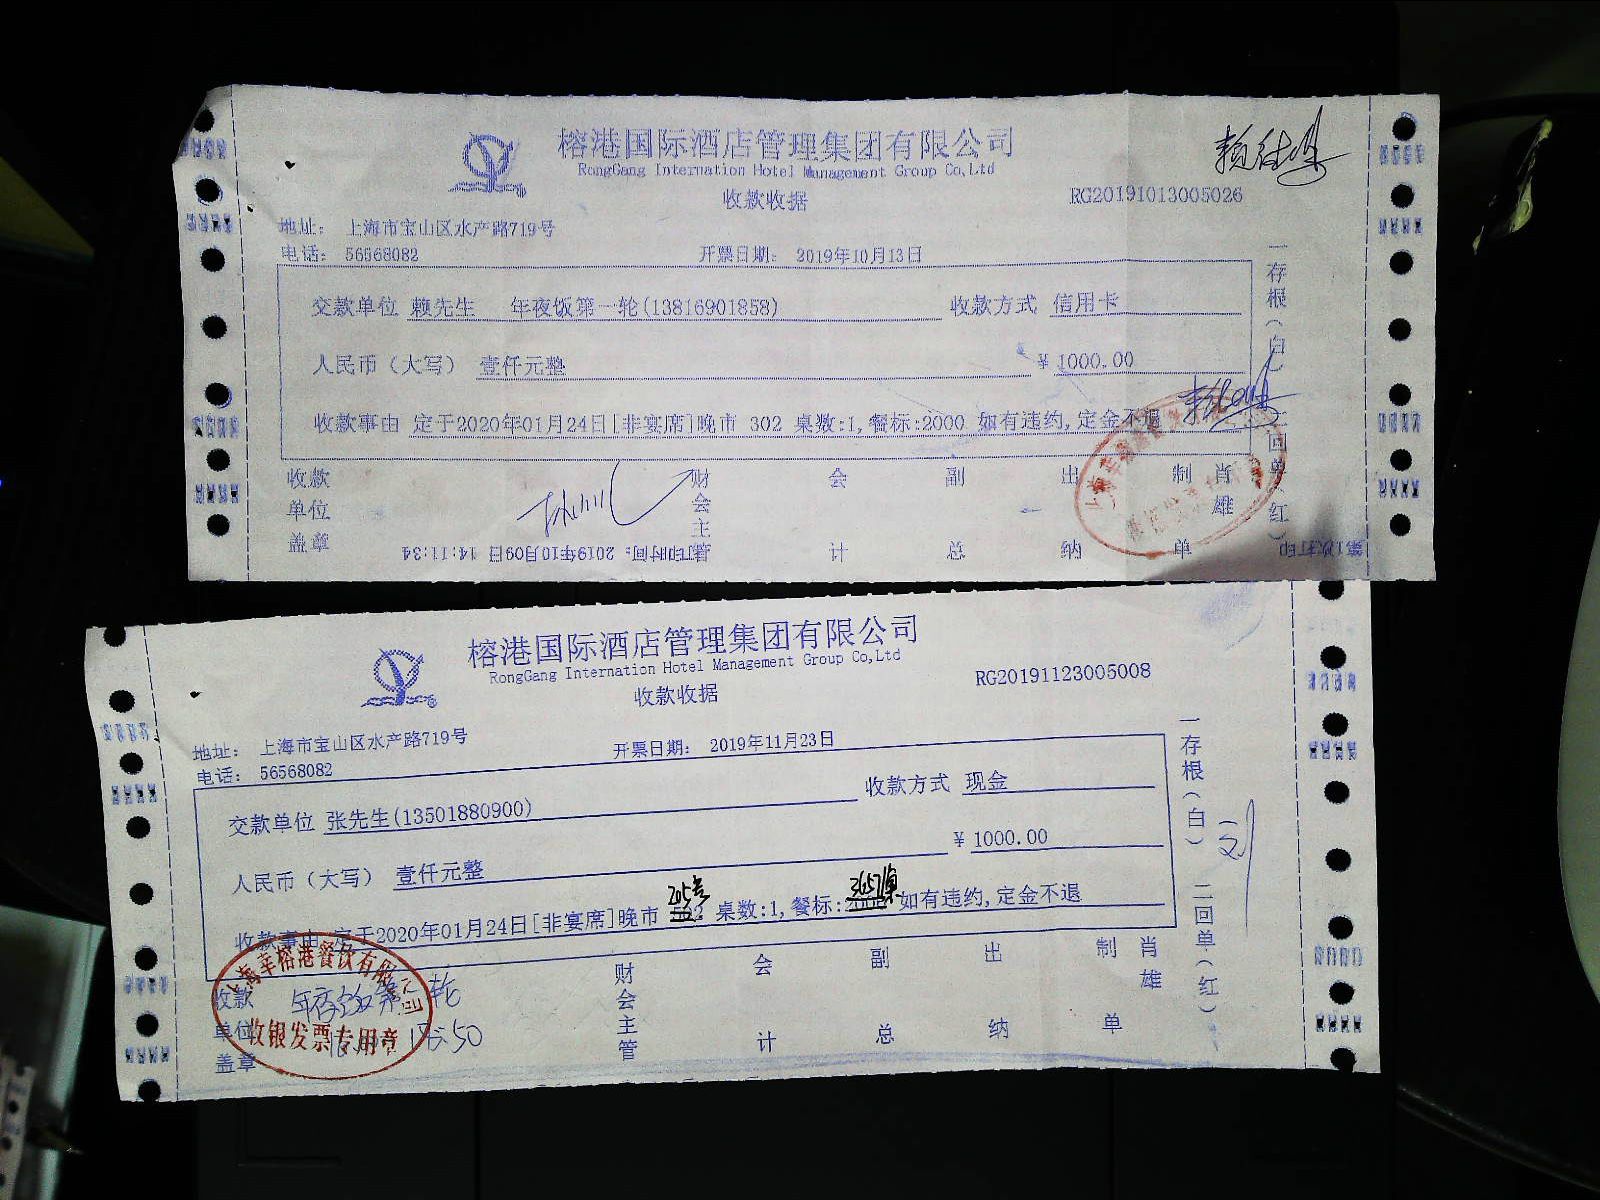 榕港国际酒店管理集团有限公司
RongGang Internation Hotel Management Group Co,Ltd
收款收据
RG20191013005026
地址： 上海市宝山区水产路719号
电话： 56568082
开票日期： 2019年10月13日
交款单位 赖先生 年夜饭第一轮(13816901858) 收款方式 信用卡
人民币（大写） 壹仟元整 ¥ 1000.00
收款事由 定于2020年01月24日[非宴席]晚市 302 桌数:1,餐标:2000 如有违约,定金不退
收款单位盖章 财会主管 会计 副总 出纳 制单 肖雄
打印时间：2019年10月09日 14:11:34
第1次打印
一存根（白） 二回单（红）
榕港国际酒店管理集团有限公司
RongGang Internation Hotel Management Group Co,Ltd
收款收据
RG20191123005008
地址： 上海市宝山区水产路719号
电话： 56568082
开票日期： 2019年11月23日
交款单位 张先生(13501880900) 收款方式 现金
人民币（大写） 壹仟元整 ¥ 1000.00
205号
收款事由 定于2020年01月24日[非宴席]晚市 桌数:1,餐标: 如有违约,定金不退
收款单位盖章 财会主管 会计 副总 出纳 制单 肖雄
一存根（白） 二回单（红）
上海莘榕港餐饮有限公司
收银发票专用章